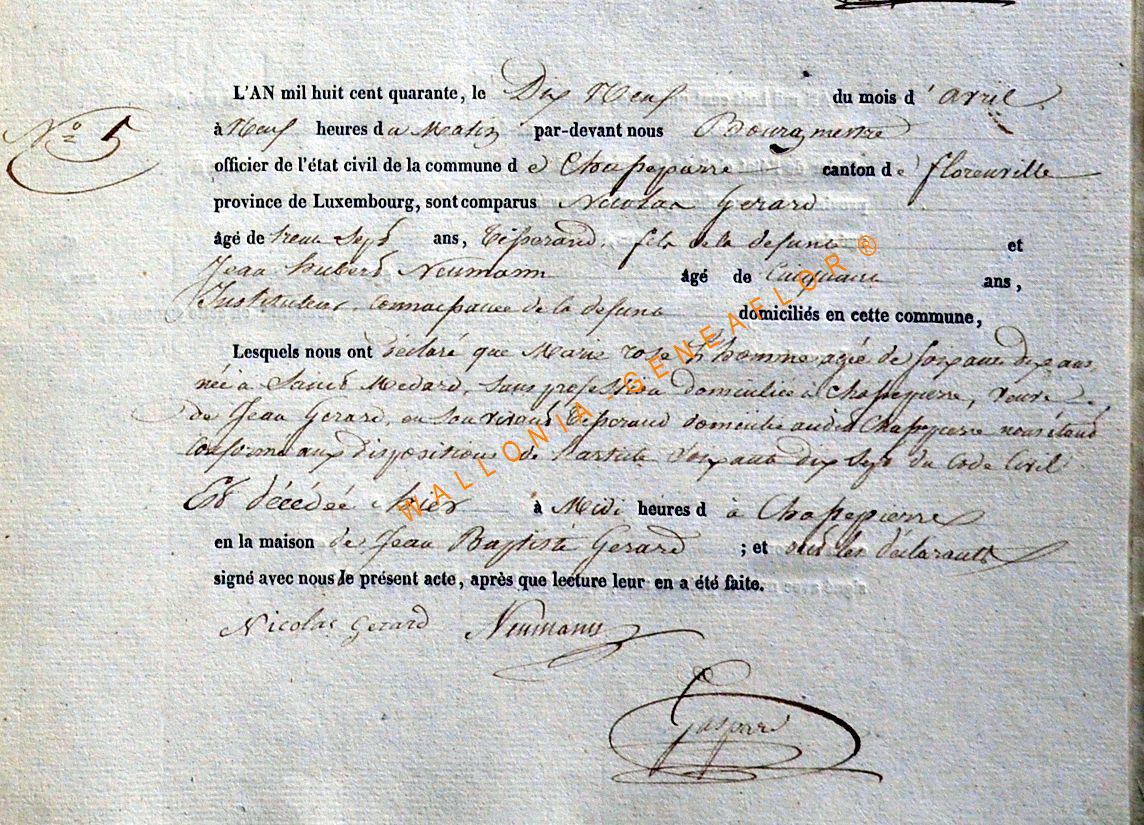 No 5
L'AN mil huit cent quarante, le Dix Neuf du mois d'avril
à Neuf heures du Matin par-devant nous Bourgmestre
officier de l'état civil de la commune de Chassepierre canton de florenville
province de Luxembourg, sont comparus Nicolas Gerard
âgé de trente Sept ans, Tisserand, fils de la defunte et
Jean hubert Neumann âgé de Cinquante ans,
Instituteur connaissance de la defunte domiciliés en cette commune,
Lesquels nous ont déclaré que Marie rose L'homme agée de soixante dix ans,
née à Saint Medard, sans profession domiciliée à Chassepierre, veuve
de Jean Gerard, en son vivant Tisserand domicilié audit Chassepierre nous étant
Conformé aux dispositions de l'article soixante dix sept du Code Civil
Est décédée hier à Midi heures d à Chassepierre
en la maison de Jean Baptiste Gerard ; et ont les déclarants
signé avec nous le présent acte, après que lecture leur en a été faite.
Nicolas Gerard Neumann
Gaspard
WALLONIA-GENEAFLOR®